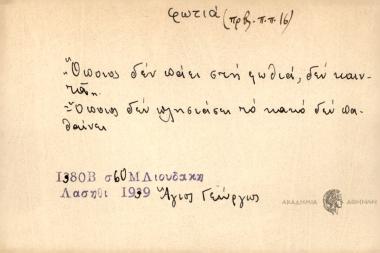 φωτιά (πρβ. π.π. 16)
"Όποιος δέν πάει στή φωθιά, δέν καιν-
τα".
Όποιος δεν πλησιάσει τό κακό δεν πα-
θαίνει
1380Β σ60 Μ Λιουδακη
Λασηθι 1939 Άγιος Γεώργιος
ΑΚΑΔΗΜΙΑ ΑΘΗΝΩΝ